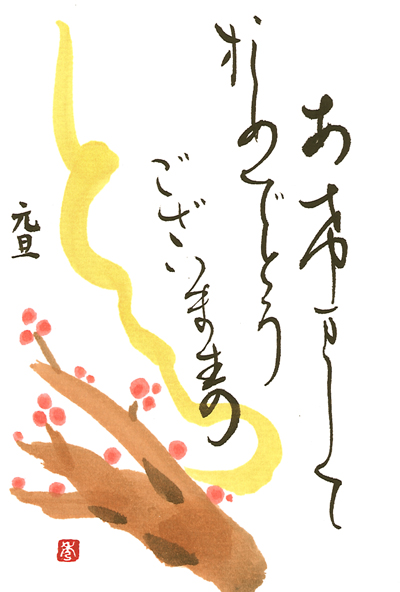 あ希まして
おめでとう
ございます
元旦